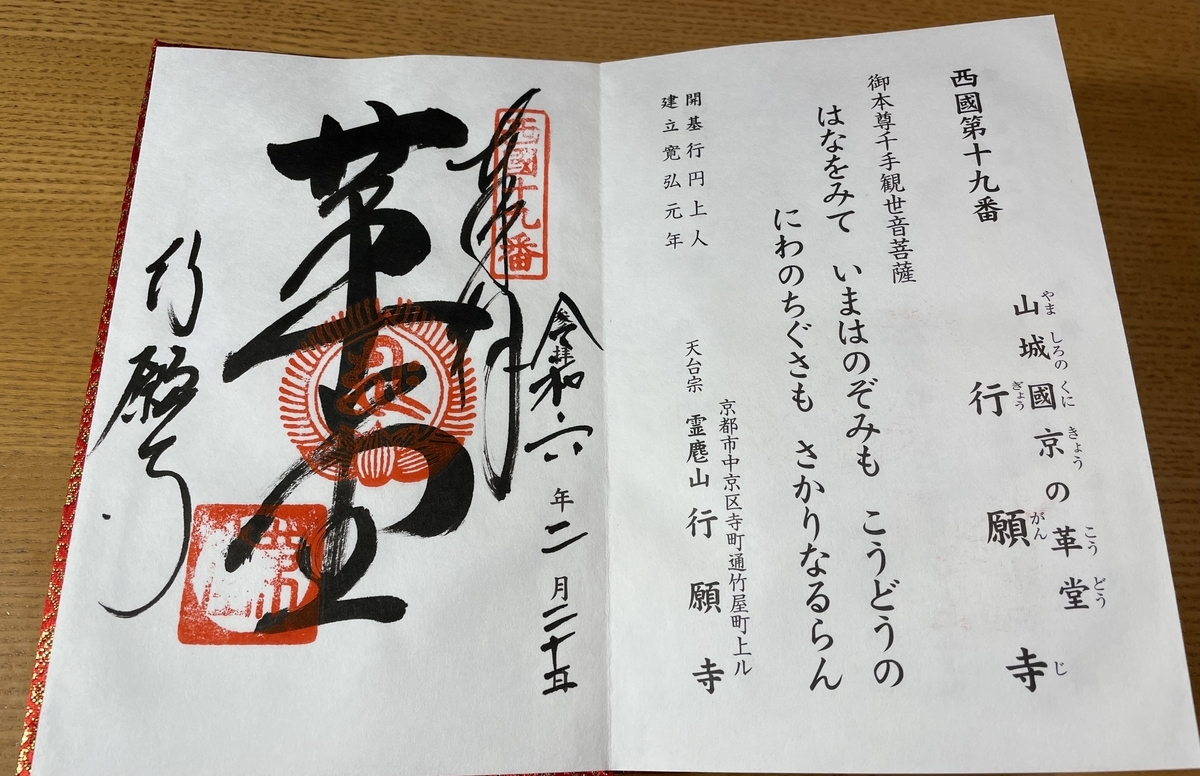 西國第十九番
山城國京の革堂
やましろのくにきょうこうどう
行願寺
ぎょうがんじ
御本尊千手観世音菩薩
はなをみて いまはのぞみも こうどうの
にわのちぐさも さかりなるらん
開基行円上人
建立寛弘元年
京都市中京区寺町通竹屋町上ル
天台宗 霊麀山行願寺
西國十九番
奉拝
令和六年二月二十五
革堂
行願寺